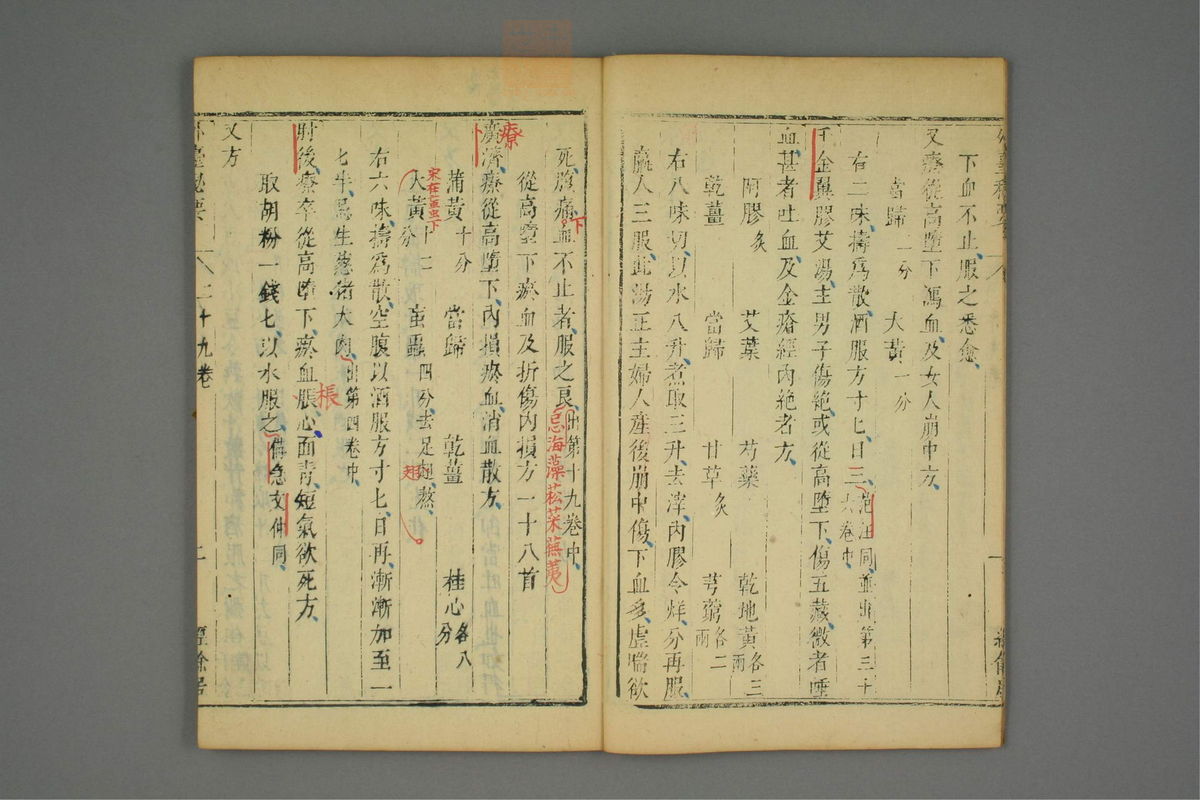 下血不止、服之悉愈、
又療從高墮下瀉血、及女人崩中方、
當歸二分 大黃一分
右二味、擣爲散、酒服方寸七、日三、范汪同、並出第三十六卷中、
千金翼膠艾湯、主男子傷絕、或從高墮下、傷五藏、微者唾
血、甚者吐血、及金瘡經內絕者方、
阿膠炙 艾葉 芍藥 乾地黃各三兩
乾薑 當歸 甘草炙 芎藭各二兩
右八味切、以水八升煮取三升、去滓、內膠令烊、分再服、
羸人三服、此湯正主婦人產後崩中、傷下血多、虛喘欲
死、腹痛血不止者、服之良、出第十九卷中、
忌海藻菘菜蕪荑
下
從高墮下瘀血及折傷內損方一十八首
廣濟療從高墮下、內損瘀血、消血散方、
療
蒲黃十分 當歸 乾薑 桂心各八分
大黃十二分 虻蟲四分去足翅熬、
宋在虻虫下
翅
右六味、擣爲散、空腹以酒服方寸七、日再、漸漸加至一
七半、忌生蔥猪犬肉、出第四卷中、
肘後、療卒從高墮下、瘀血脹心、面青、短氣欲死方、
棖
取胡粉一錢七、以水服之、備急文仲同、
又方
外臺秘要 二十九卷 二 經餘居